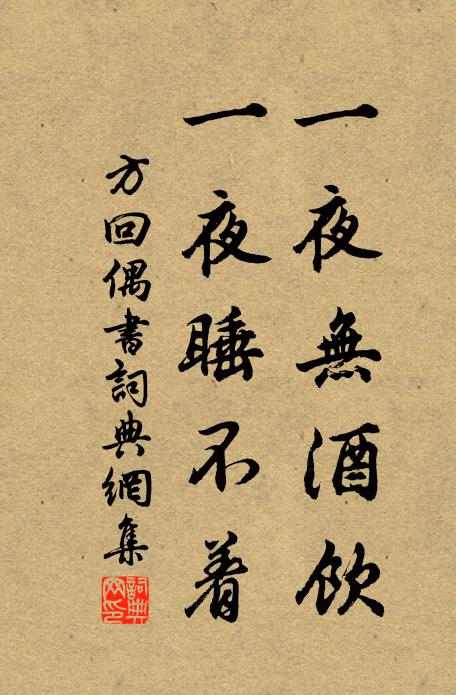 一夜無酒飲
一夜睡不着
方回偶書詞典網集
詞典网印